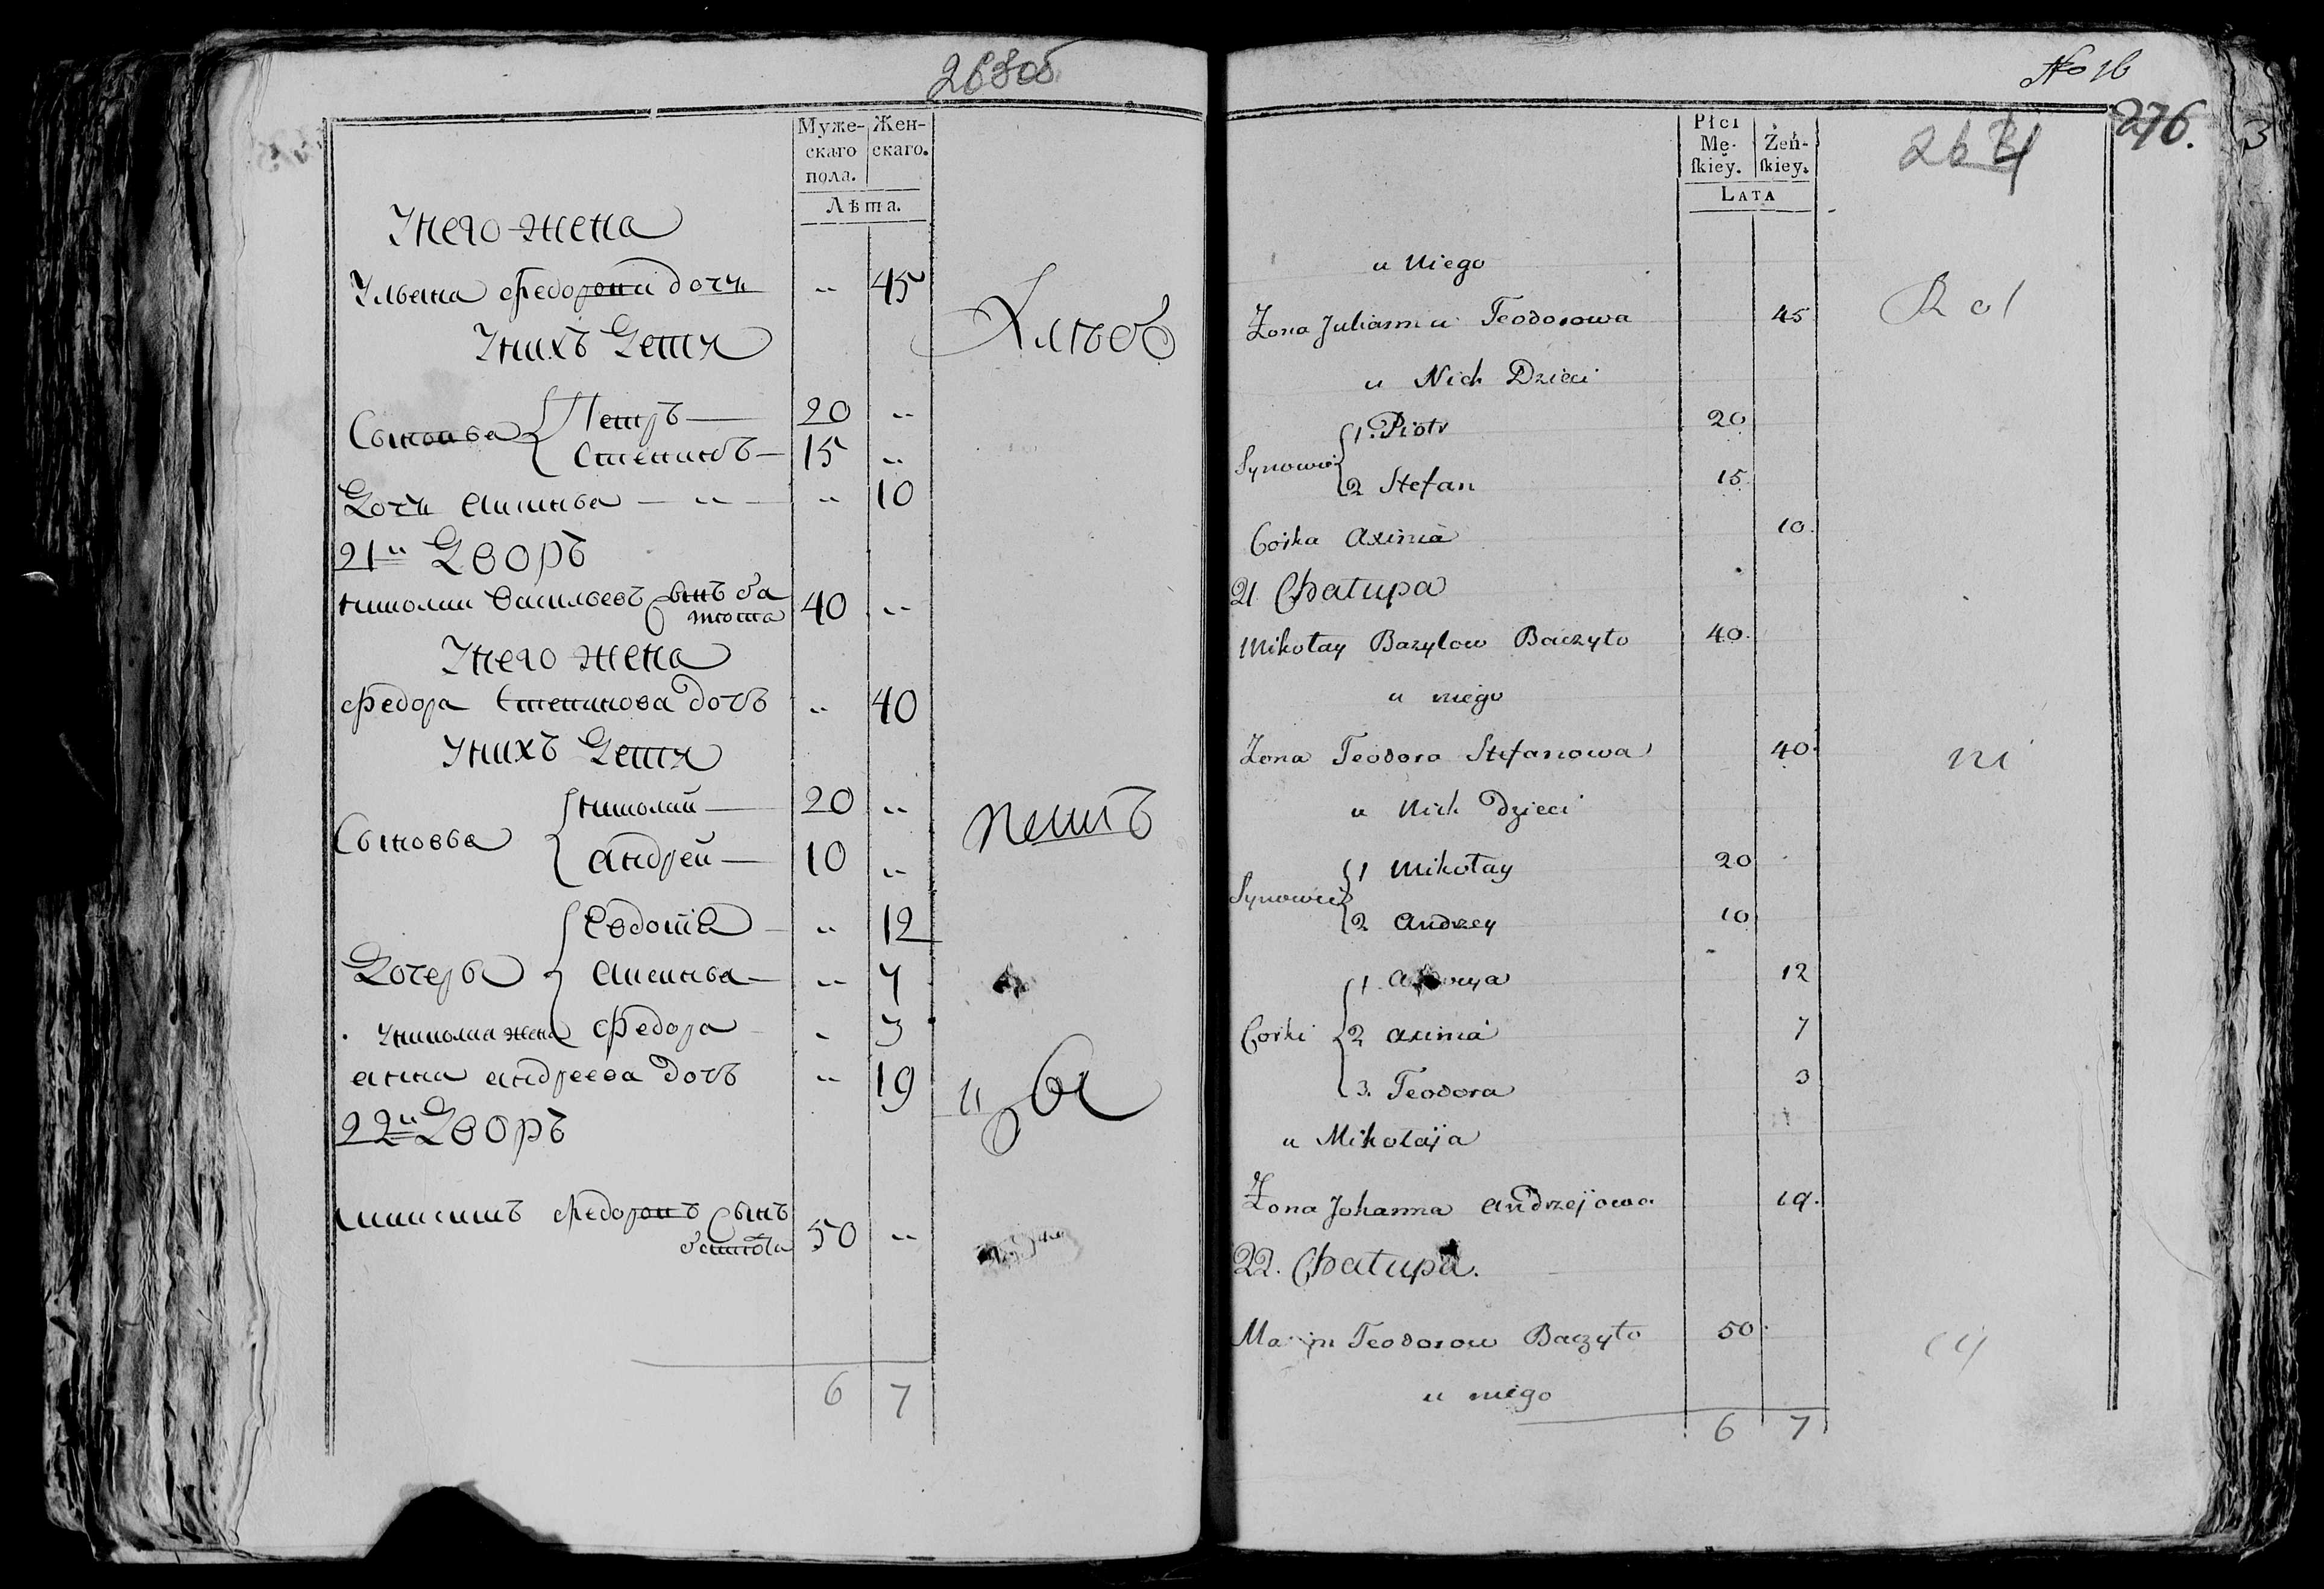 263об
Муже-
скаго
пола.
Жен-
скаго.
Лѣта.
Унего жена
Ульяна Федорова дочь .. 45
Унихъ Дети
Сыновья Петръ 20 ..
Степанъ 15 ..
Дочь Аксинья .. 10
21й Дворъ
Николай Васильевъ сынъ Ба 40 ..
Унего жена
Федора Степанова дочь .. 40
Унихъ Дети
Сыновья Николай 20 ..
Андрей 10 ..
Евдотiя .. 12
Дочерь Аксинья .. 7
Унинолая жена Федора .. 3
Анна Андреева дочь .. 19
22й Дворъ
Федоровъ Сынъ
50 ..
6 7
No 16
276.
264
Płci
Mę-
ſkiey.
Żeń-
ſkiey.
LATA
u Niego
Żona Julianna Teodorowa 45
u Nich Dzieci
Synowie 1. Piotr 20
2 Stefan 15
Corka Axinia 10.
21. Chałupa
Mikołay Bazylow Baczyło 40.
u niego
Zona Teodora Stefanowa 40.
u Nich Dzieci
Synowie 1 Mikołay 20
2 Andrzey 10
1. 12
Corki 2 Axinia 7
3. Teodora 3
u Mikolaja
Żona Johanna Andrzejowa 19.
22. Chałupa.
Teodorow Baczyło 50.
u niego
6 7